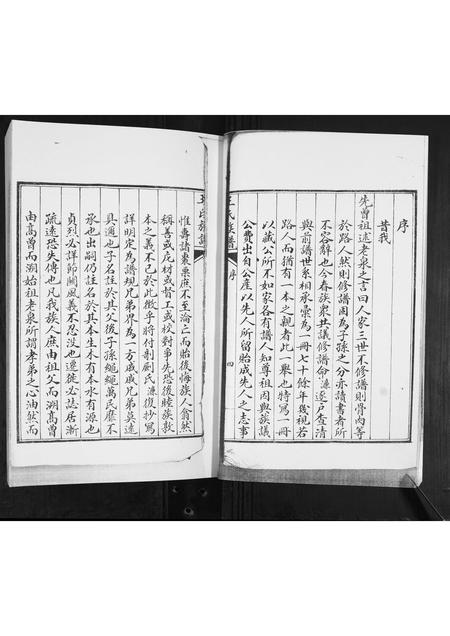 序
昔我
先曾祖述老泉之言曰人家三世不修譜則骨肉等
於路人然則修譜固為子孫之分亦讀書者所
不容辭也今春族衆共議修譜命溓逐戶查清
與前譜世系相承彙為一冊七十餘年幾視若
路人而猶有一本之親者此一舉也特寫一冊
以藏公所不如家各有譜人知尊祖因與族議
公費出自公産以先人所留貽成先人之志事
王氏族譜 序 四
惟壽諸棗栗庶不至淪亡而貽後悔族人翕然
稱善或庀材或督工或校對事先恐後睦族敦
本之義不已於此徵乎將付剞劂氏溓復抄寫
詳明定為譜規兄弟界為一方戚戚兄弟莫遠
具邇也子名註於其父後子孫繩繩萬民靡不
承也出嗣仍註名於其本生木有本水有源也
貞烈必詳節關風義不忍没也遷徙必誌居漸
疏遠恐失傳也凡我族人庶由祖父而溯高曾
由高曾而溯始祖老泉所謂孝弟之心油然而